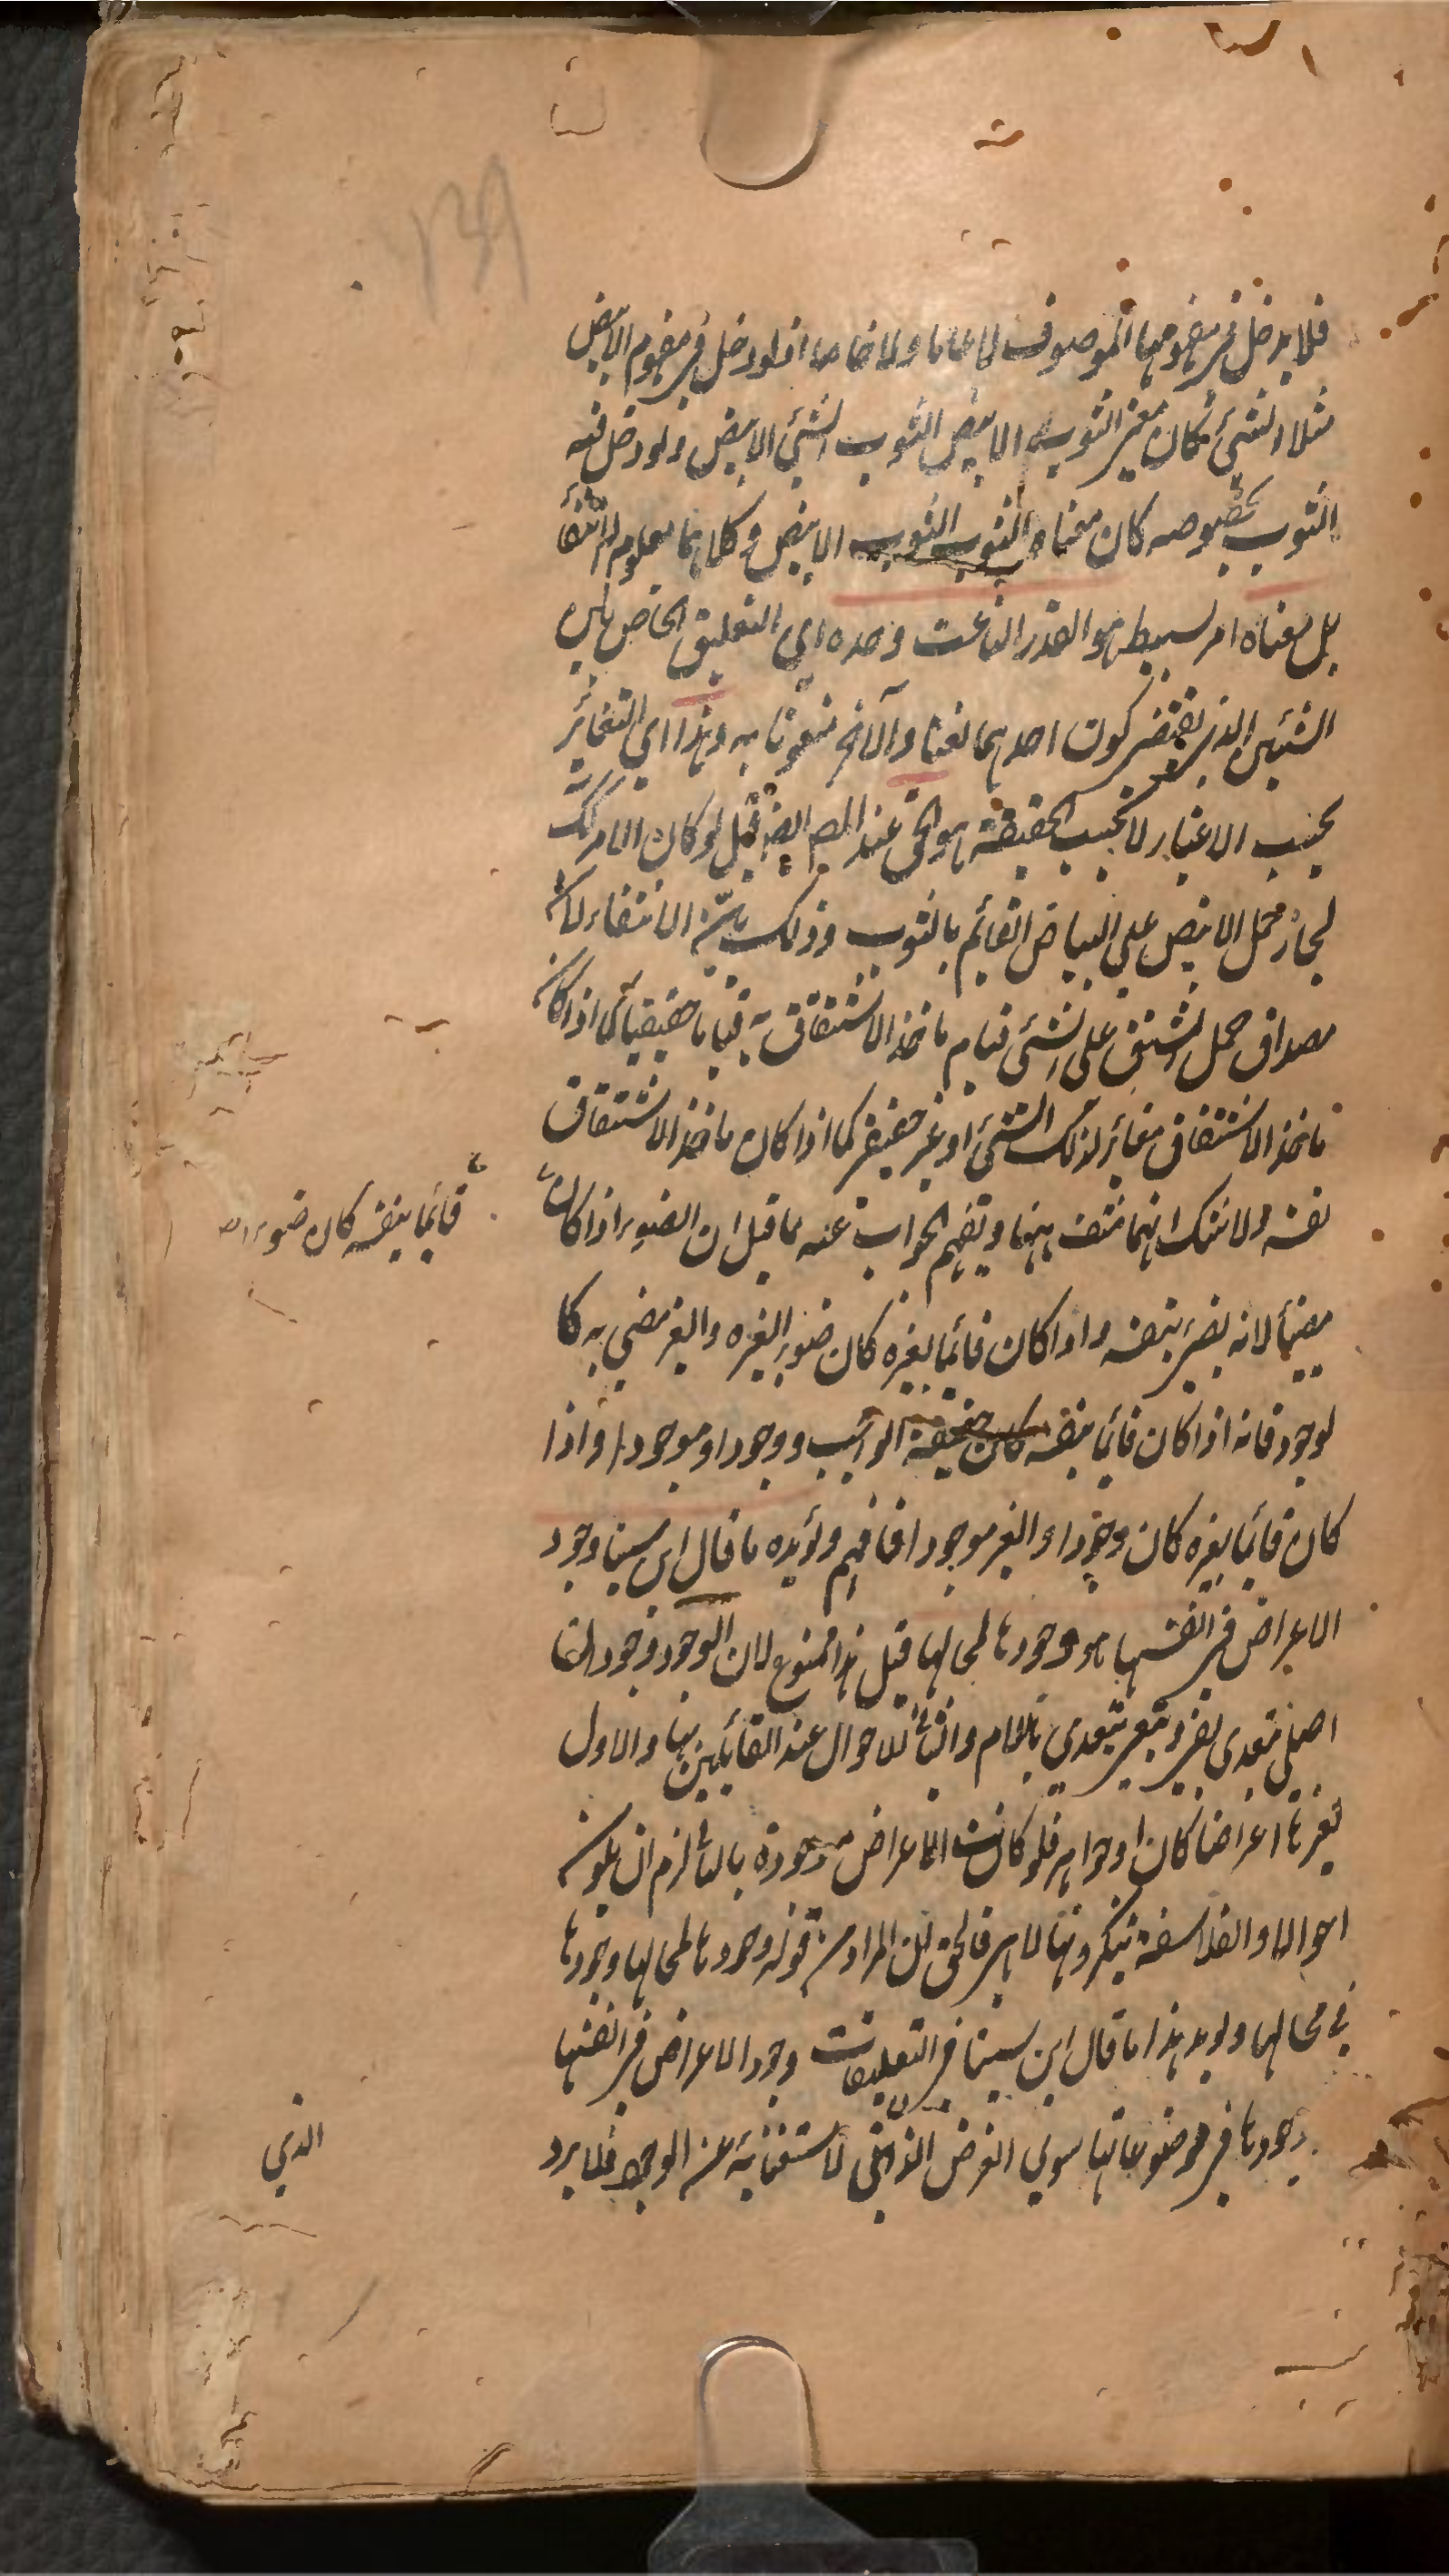 139
فلا يدخل في مفهومها الموصوف لا عاما ولا خاصا اذ لو دخل في مفهوم الابيض
مثلا الشئ كان معنى الثوب الابيض الثوب الشئ الابيض ولو دخل فيه
الثوب بخصوصه كان معناه الثوب الثوب الابيض وكلاهما معلوم الانتفاء
بل معناه امر بسيط هو القدر الناعت وحده اي التعليق الخاص بين
الشيئين الذي يقتضي كون احدهما نعتا والآخر منعوتا به وهذا اي التغائر
بحسب الاعتبار لا بحسب الحقيقة هو الحق عند المص ايضا قيل لو كان الامر كك
لجاز حمل الابيض على البياض القائم بالثوب وذلك بيّن الانتفاء لان
مصداق حمل المشتق على الشئ قيام ماخذ الاشتقاق به قياما حقيقيا كما اذا كان
ماخذ الاشتقاق مغائر لذلك الشئ او غير حقيقي كما اذا كان ماخذ الاشتقاق
نفسه ولا شك انهما منتف ههنا ويفهم الجواب عنه مما قيل ان الضوء اذا كان
قائما بنفسه كان ضوءا
مضيئا لانه يضئ بنفسه واذا كان قائما بغيره كان ضوءا لغيره والغير مضي به كا
لوجود فانه اذا كان قائما بنفسه كان حقيقة الواجب ووجودا وموجودا واذا
كان قائما بغيره كان وجودا والغير موجودا فافهم ويؤيده ما قال ابن سينا وجود
الاعراض في انفسها هو وجودها لمحالها قيل هذا ممنوع لان الوجود وجودان
اصلي متعدي بفي وتبعي يتعدي باللام والثاني للاحوال عند القائلين بها والاول
لغيرها اعراضا كان او جواهر فلو كانت الاعراض موجودة بالثاني لزم ان يكون
احوالا والفلاسفة ينكرونها لا هي فالحق ان المراد من قوله وجودها لمحالها وجودها
في محالها ويؤيد هذا ما قال ابن سينا في التعليقات وجود الاعراض في انفسها
وجودها في موضوعاتها سوي العرض الذي هو لاستغنائه عن الوجود فلا يرد
الذي